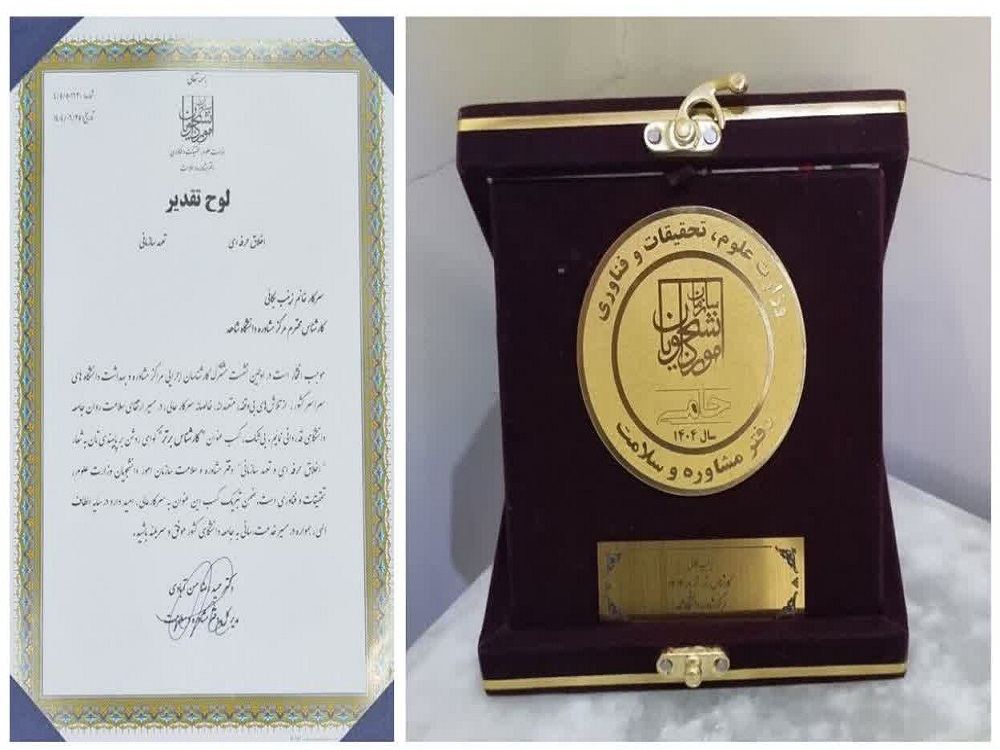 بسمه تعالی
شماره:
تاریخ:
سازمان
امور دانشجویان
وزارت علوم، تحقیقات و فناوری
دفتر مشاوره و سلامت
لوح تقدیر
اخلاق حرفه ای
تعهد سازمانی
سرکار خانم زینب
کارشناس محترم مرکز مشاوره دانشگاه شاهد
موجب افتخار است در اولین نشست مشترک کارشناسان اجرایی مراکز مشاوره و بهداشت دانشگاه های
سراسر کشور، از تلاش های بی وقفه، متعهدانه، خالصانه سرکار عالی، در مسیر ارتقای سلامت روان جامعه
دانشگاهی قدردانی نماییم. بی شک، کسب عنوان "کارشناس برتر" گواهی روشن بر پایبندی تان به شعار
"اخلاق حرفه ای و تعهد سازمانی" دفتر مشاوره و سلامت سازمان امور دانشجویان وزارت علوم،
تحقیقات و فناوری است. ضمن تبریک کسب این عنوان به سرکار عالی، امید دارد در سایه الطاف
الهی، همواره در مسیر خدمت رسانی به جامعه دانشگاهی کشور موفق و سربلند باشید.
دکتر حمید
مدیر کل دفتر مشاوره و سلامت
وزارت علوم، تحقیقات و فناوری
سازمان
امور دانشجویان
سال ۱۴۰۴
دفتر مشاوره و سلامت